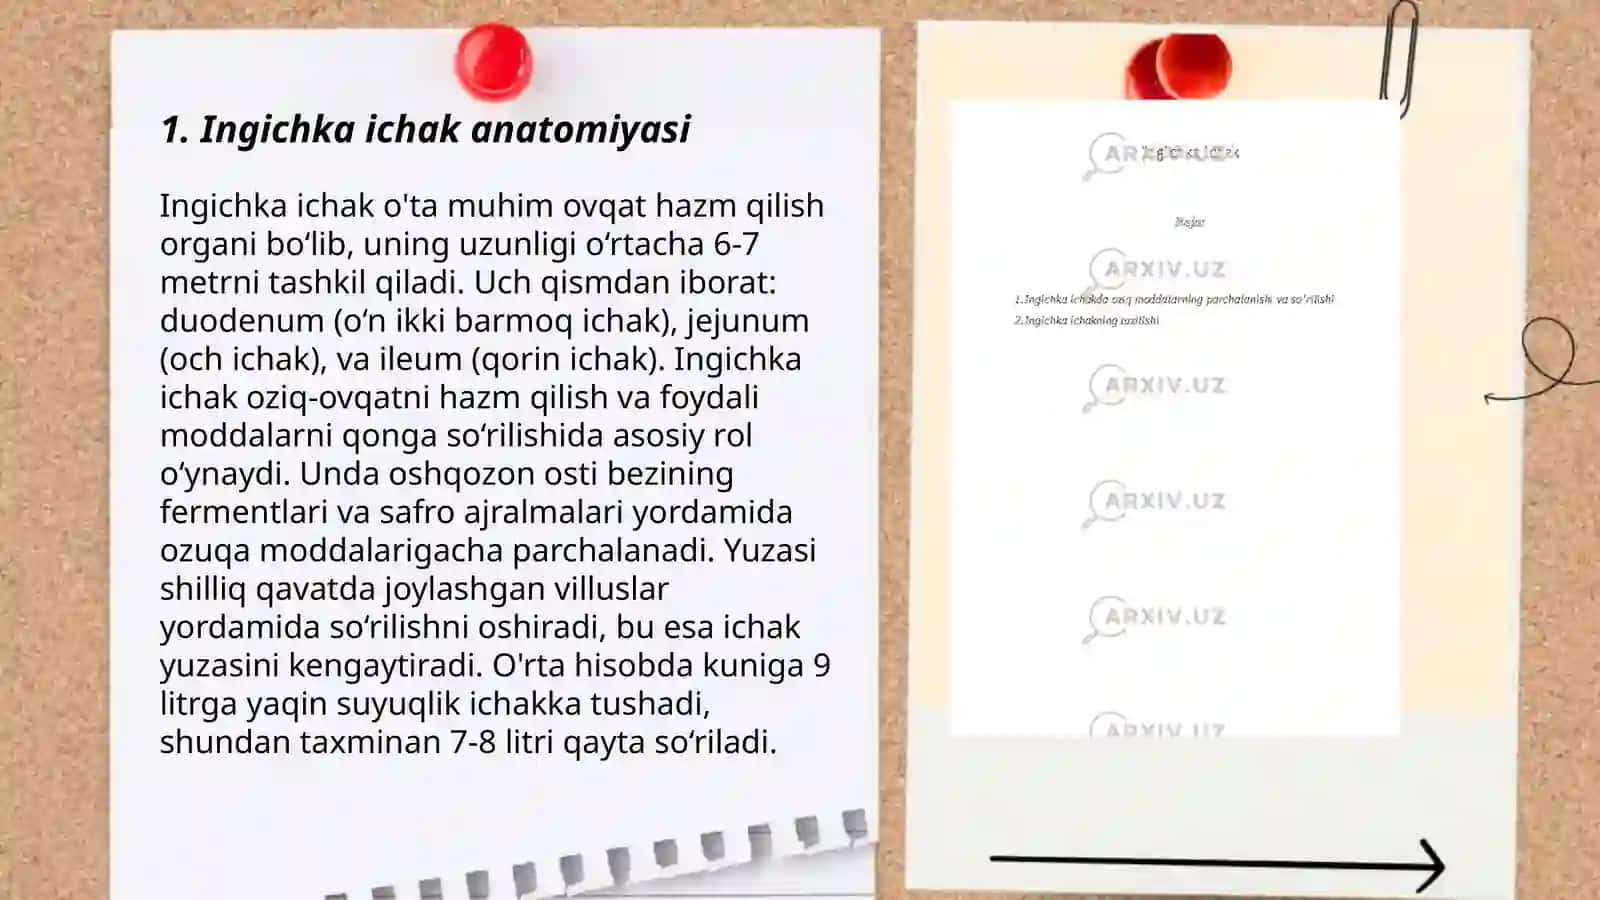 1. Ingichka ichak anatomiyasi
Ingichka ichak o'ta muhim ovqat hazm qilish
organi bo‘lib, uning uzunligi o‘rtacha 6-7
metrni tashkil qiladi. Uch qismdan iborat:
duodenum (o‘n ikki barmoq ichak), jejunum
(och ichak), va ileum (qorin ichak). Ingichka
ichak oziq-ovqatni hazm qilish va foydali
moddalarni qonga so‘rilishida asosiy rol
o‘ynaydi. Unda oshqozon osti bezining
fermentlari va safro ajralmalari yordamida
ozuqa moddalarigacha parchalanadi. Yuzasi
shilliq qavatda joylashgan villuslar
yordamida so‘rilishni oshiradi, bu esa ichak
yuzasini kengaytiradi. O'rta hisobda kuniga 9
litrga yaqin suyuqlik ichakka tushadi,
shundan taxminan 7-8 litri qayta so‘riladi.
ARXIV.UZ
Reja:
ARXIV.UZ
1.Ingichka ichakda oziq moddalarning parchalanishi va so'rilishi
2.Ingichka ichakning tuzilishi
ARXIV.UZ
ARXIV.UZ
ARXIV.UZ
ARXIV.UZ